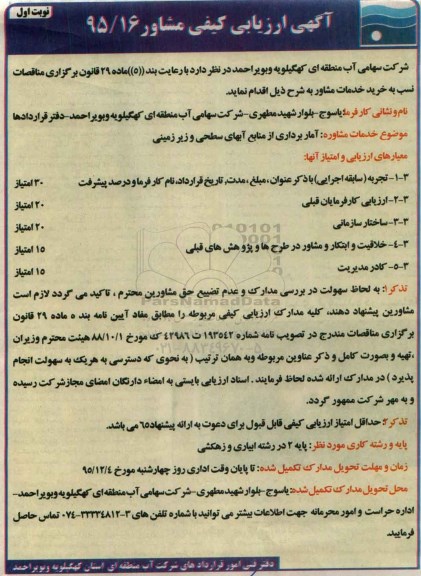 نوبت اول
آگهی ارزیابی کیفی مشاور ۹۵/۱۶
شرکت سهامی آب منطقه ای کهگیلویه وبویراحمد در نظر دارد با رعایت بند ((۵))ماده ۲۹ قانون برگزاری مناقصات
نسب به خرید خدمات مشاور به شرح ذیل اقدام نماید.
نام و نشانی کارفرما:یاسوج-بلوار شهید مطهری-شرکت سهامی آب منطقه ای کهگیلویه وبویراحمد-دفتر قراردادها
موضوع خدمات مشاوره: آمار برداری از منابع آبهای سطحی و زیر زمینی
معیارهای ارزیابی و امتیاز آنها:
۳-۱- تجربه (سابقه اجرایی) با ذکر عنوان ، مبلغ ، مدت، تاریخ قرارداد، نام کارفرما و درصد پیشرفت ۳۰ امتیاز
۳-۲- ارزیابی کارفرمایان قبلی ۲۰ امتیاز
۳-۳- ساختار سازمانی ۲۰ امتیاز
۳-۴- خلاقیت و ابتکار و مشاور در طرح ها و پژوهش های قبلی ۱۵ امتیاز
۳-۵- کادر مدیریت ۱۵ امتیاز
تذکر۱: به لحاظ سهولت در بررسی مدارک و عدم تضییع حق مشاورین محترم ، تاکید می گردد لازم است
مشاورین پیشنهاد دهنده، کلیه مدارک ارزیابی کیفی مربوطه را مطابق مفاد آیین نامه بند ه ماده ۲۹ قانون
برگزاری مناقصات مندرج در تصویب نامه شماره ۱۹۳۵۴۲ ت ۴۲۹۸۶ ک مورخ ۸۸/۱۰/۱ هیئت محترم وزیران
،تهیه و بصورت کامل و ذکر عناوین مربوطه وبه همان ترتیب ( به نحوی که دسترسی به هریک به سهولت انجام
پذیرد ) در مدارک ارائه شده لحاظ فرمایند . اسناد ارزیابی بایستی به امضاء دارندگان امضای مجاز شرکت رسیده
و به مهر شرکت ممهور گردد.
تذکر۲: حداقل امتیاز ارزیابی کیفی قابل قبول برای دعوت به ارائه پیشنهاد۶۵ می باشد.
پایه و رشته کاری مورد نظر : پایه ۲ در رشته ابیاری و زهکشی
زمان و مهلت تحویل مدارک تکمیل شده: تا پایان وقت اداری روز چهارشنبه مورخ ۹۵/۱۲/۴
محل تحویل مدارک تکمیل شده: یاسوج-بلوار شهید مطهری-شرکت سهامی آب منطقه ای کهگیلویه وبویراحمد-
اداره حراست و امور محرمانه جهت اطلاعات بیشتر می توانید با شماره تلفن های ۳-۳۳۳۳۴۸۱۲-۰۷۴ تماس حاصل
فرمایید.
دفتر فنی امور قرارداد های شرکت آب منطقه ای استان کهگیلویه وبویراحمد
ParsNamadData